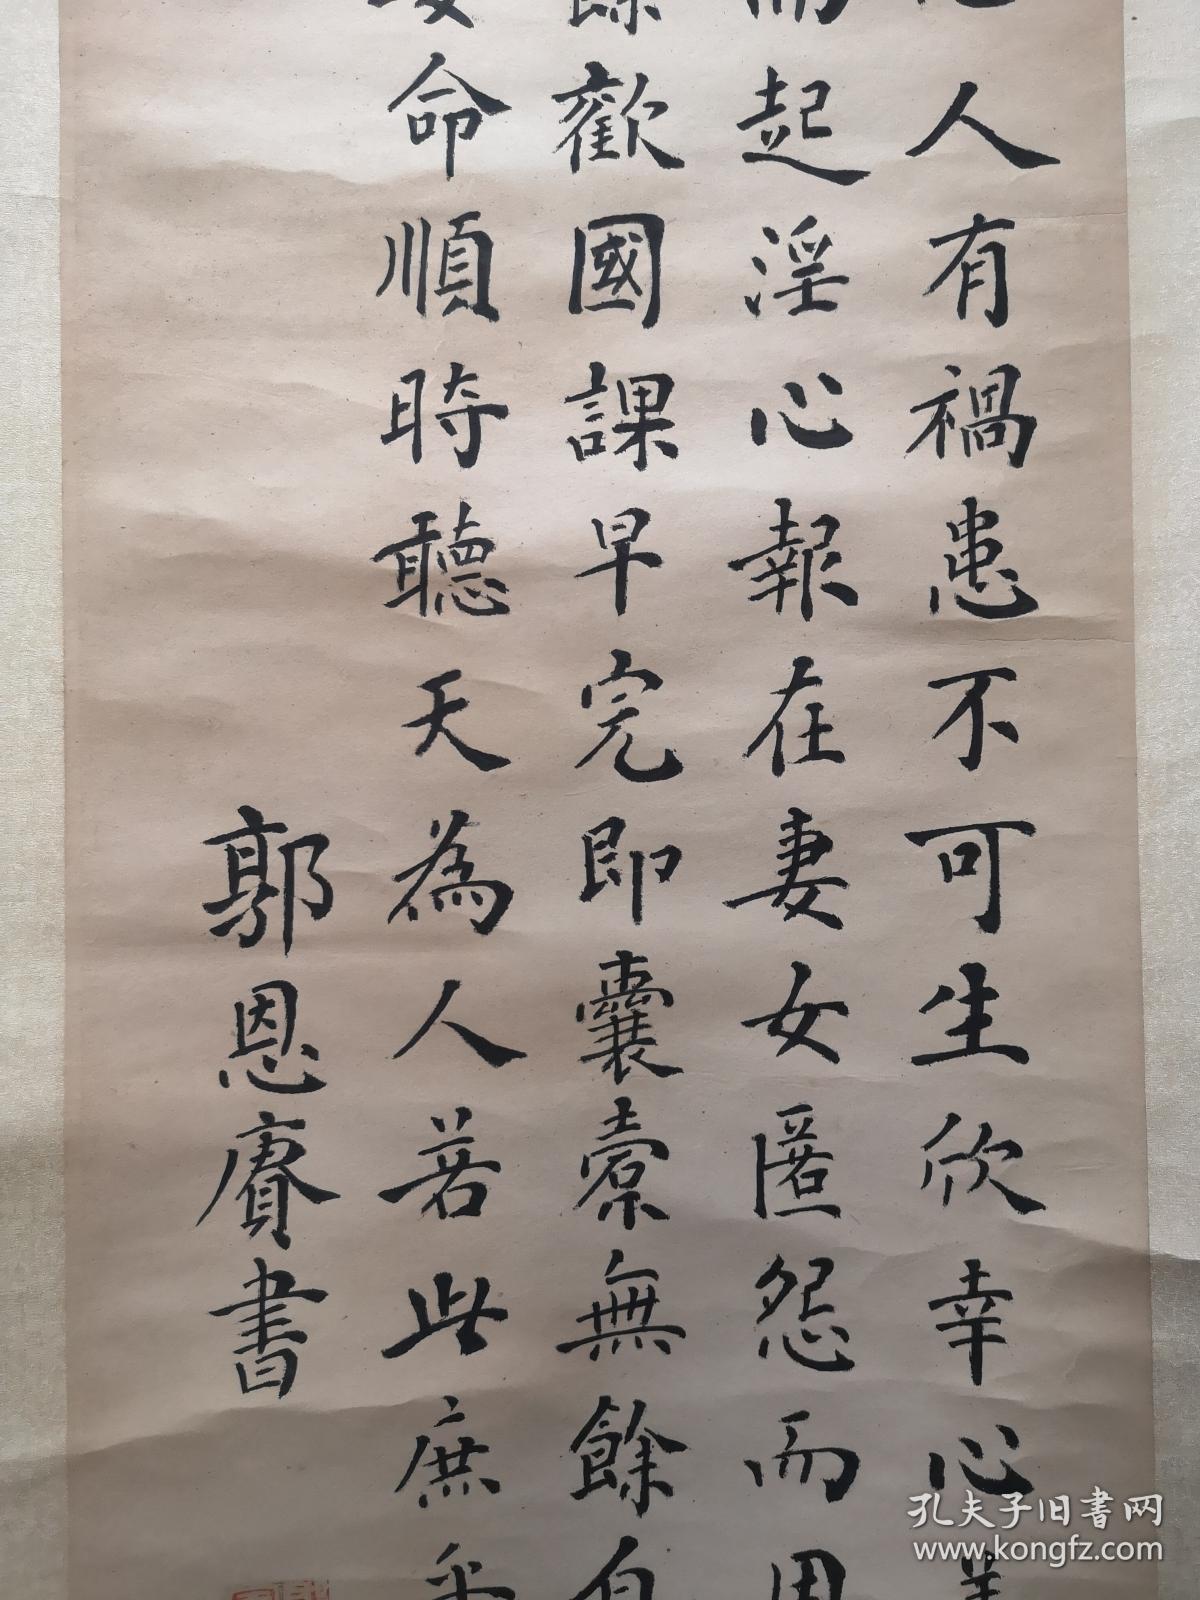 人有禍患不可生欣幸心
而起淫心報在妻女匿怨而用
餘歡國課早完即囊橐無餘自
安命順時聽天為人若此庶乎
郭恩賡書
孔夫子旧书网
www.kongfz.com